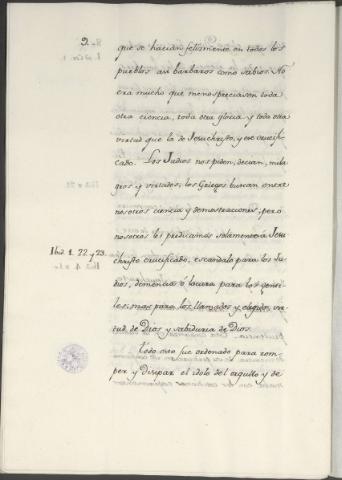 2.
que se hacian felizmente en todos los
pueblos asi barbaros como sabios. No
era mucho que menospreciasen toda
otra ciencia, toda otra gloria y toda otra
virtud que la de Jesuchristo, y ese crucifi-
cado. Los Judios nos piden, decian, mila-
gros y virtudes, los Griegos buscan entre
nosotros ciencia y demostraciones, pero
nosotros les predicamos solamente a Jesu
Ibid. 1. 22 y 23.
christo crucificado, escandalo para los Ju-
dios, demencia ó locura para los genti-
les; mas para los llamados y elegidos, vir-
tud de Dios y sabiduria de Dios.
Todo esto fue ordenado para rom-
per y disipar el idolo del orgullo y de